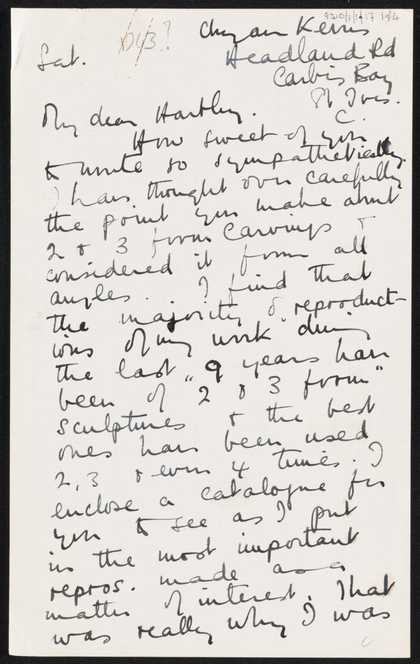 1943?
9210/1/1/17 1/4
Chy an Kerris
Headland Rd
Carbis Bay
St Ives.
C.
Sat.
My dear Hartley.
How sweet of you
to write so sympathetically.
I have thought over carefully
the point you make about
2 & 3 form carvings &
considered it from all
angles. . I find that
the majority of reproduct-
ions of my work during
the last 9 years have
been of "2 & 3 form"
sculptures & the best
ones have been used
2, 3 & even 4 times. I
enclose a catalogue for
you to see as I put
in the most important
repros. made as a
matter of interest. That
was really why I was